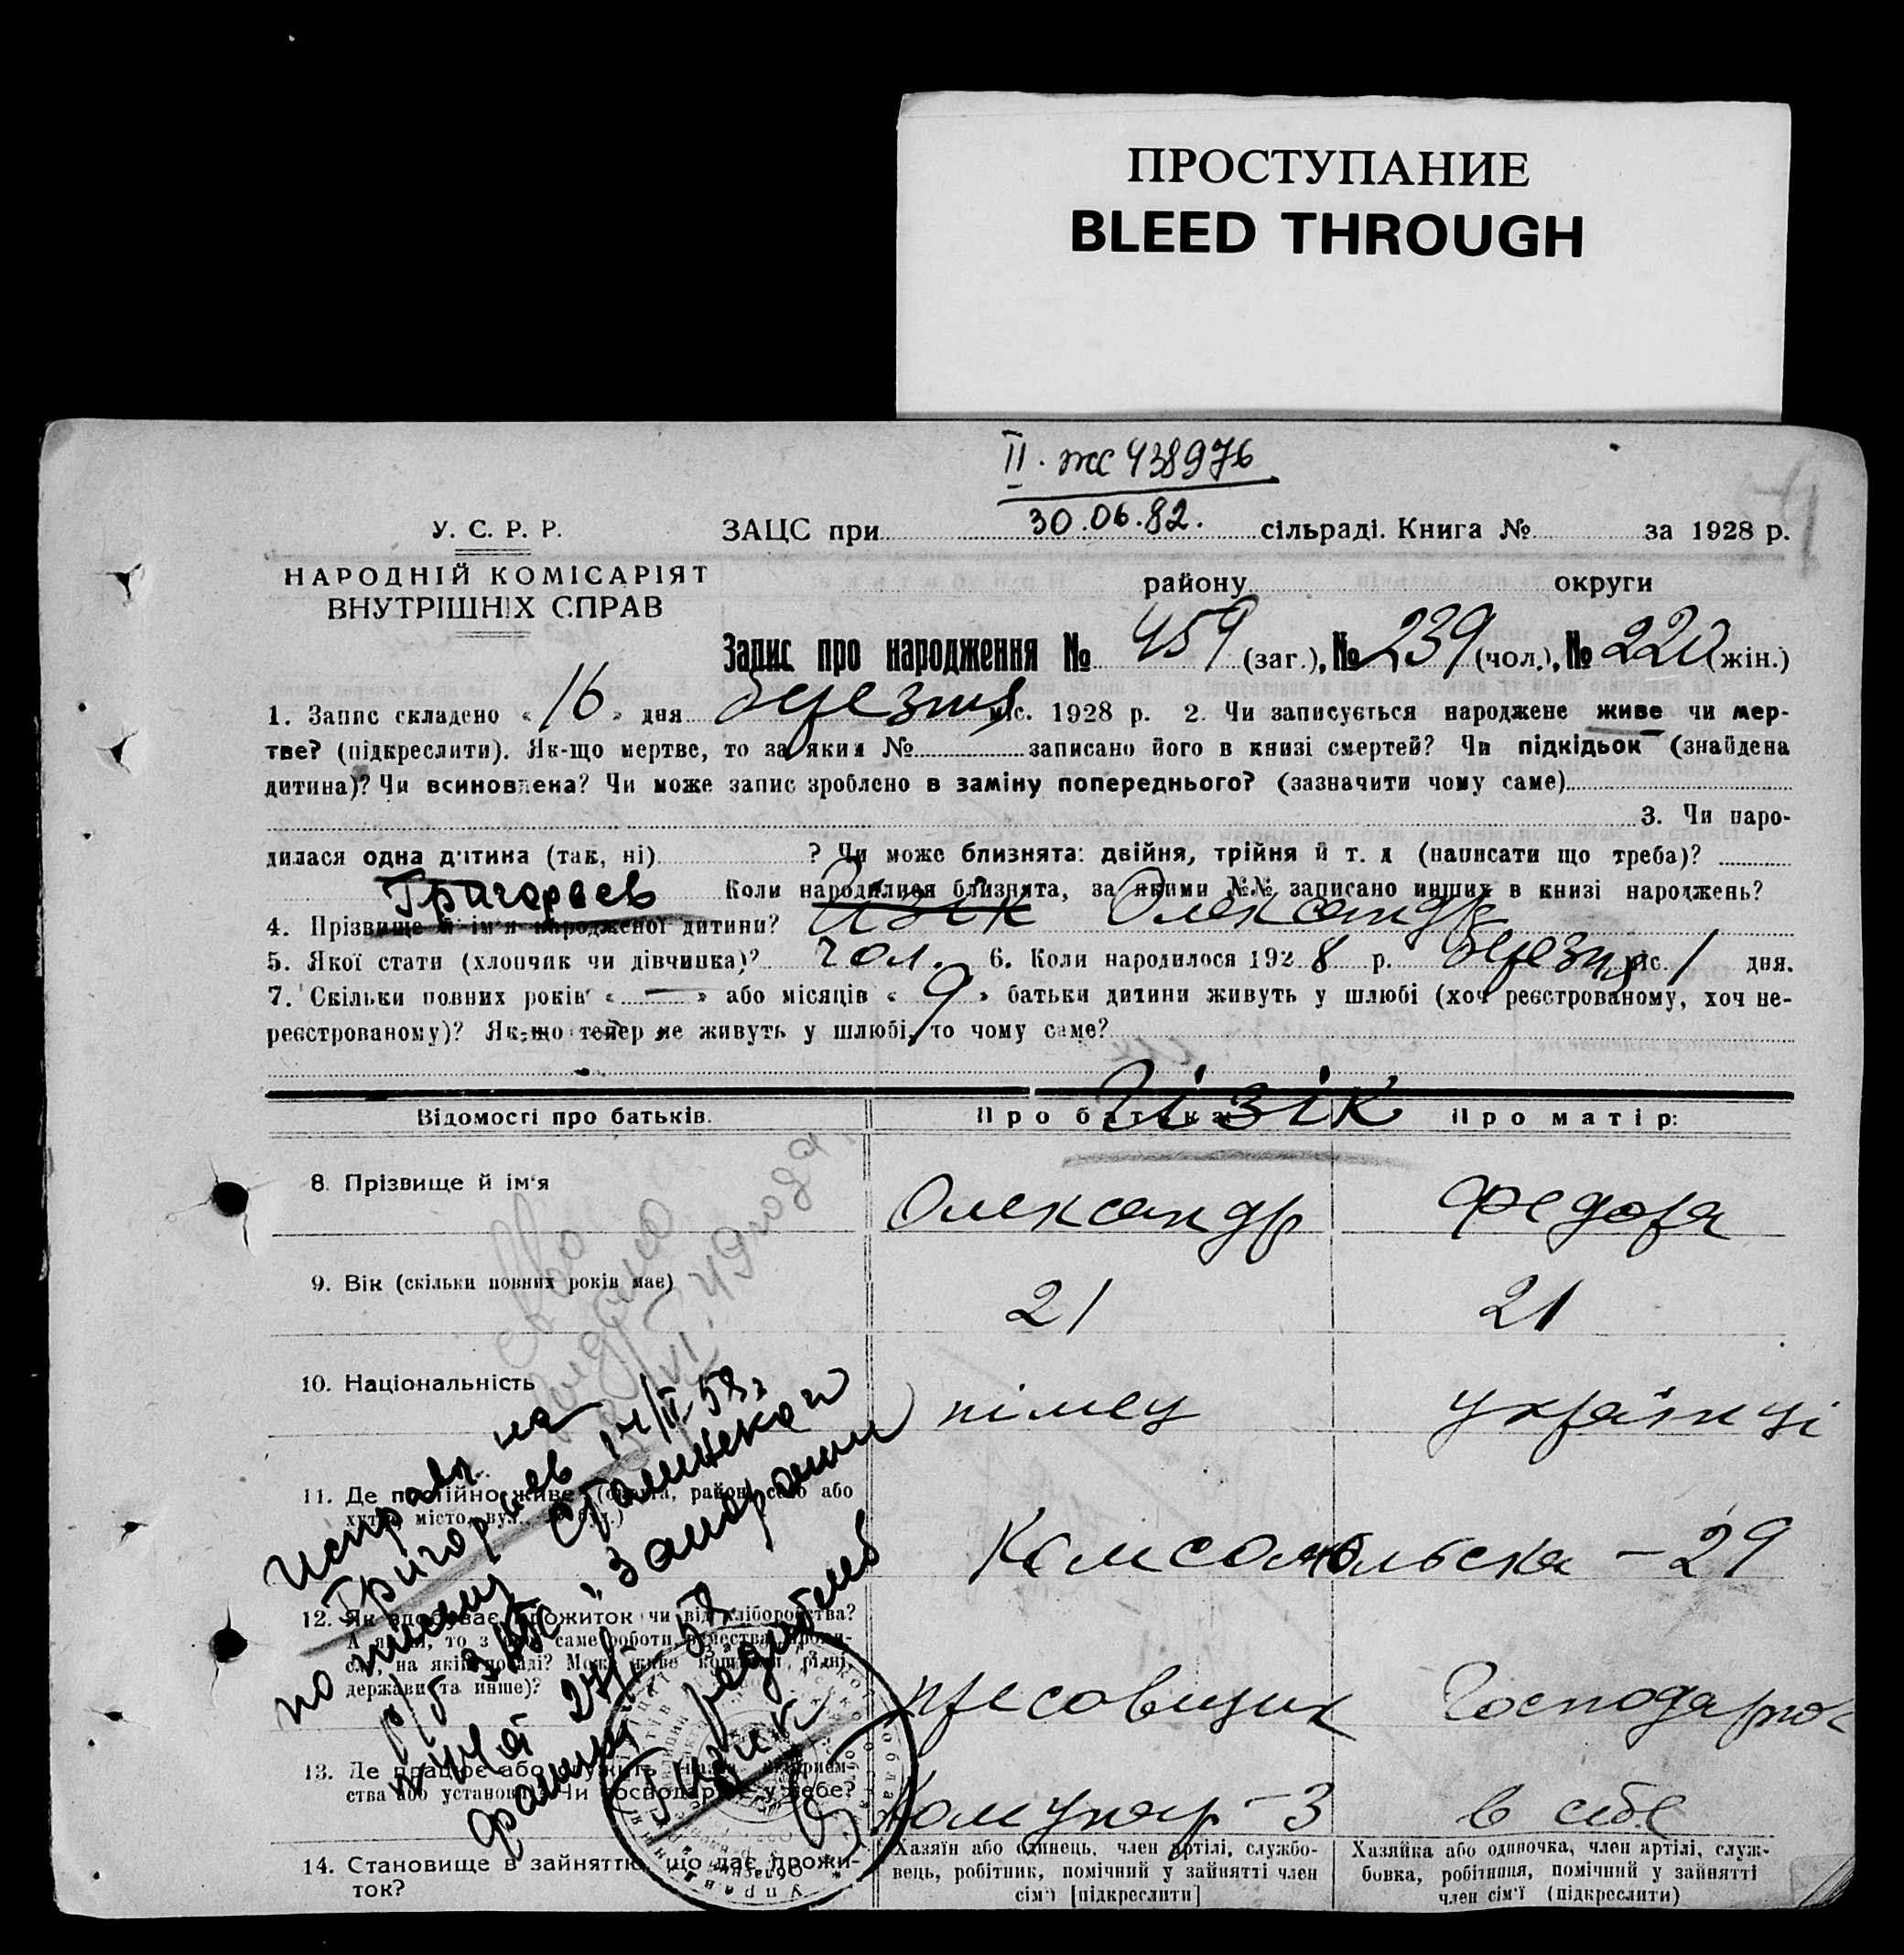 ПРОСТУПАНИЕ
BLEED THROUGH
II. жс 438976
30.06.82.
У. С. Р. Р.
ЗАЦС при сільраді. Книга № за 1928 р.
НАРОДНІЙ КОМІСАРІЯТ
ВНУТРІШНІХ СПРАВ
району округи
Запис про народження № 459 (заг.), № 239 (чол.), № 220 (жін.)
1. Запис складено « 16 » дня березня міс. 1928 р. 2. Чи записується народжене живе чи мер-
тве? (підкреслити). Як-що мертве, то за яким № записано його в книзі смертей? Чи підкідьок (знайдена
дитина)? Чи всиновлена? Чи може запис зроблено в заміну попереднього? (зазначити чому саме)
3. Чи наро-
дилася одна дитина (так, ні) ? Чи може близнята: двійня, трійня й т. д (написати що треба)?
Григорьев Коли народилися близнята, за якими №№ записано инших в книзі народжень?
4. Прізвище й ім'я народженої дитини? Олександр
5. Якої стати (хлопчик чи дівчинка)? чол. 6. Коли народилося 1928 р. березня міс. 1 дня.
7. Скільки повних років « — » або місяців « 9 » батьки дитини живуть у шлюбі (хоч реєстрованому, хоч не-
реєстрованому)? Як-що тепер не живуть у шлюбі, то чому саме?
Відомості про батьків. Про батька: Про матір:
Гізік
8. Прізвище й ім'я Олександр Федора
9. Вік (скільки повних років має) 21 21
10. Національність німец українці
11. Де постійно живе (округа, район, село або
хутір, місто, вул., № буд.)
Комсомольська - 29
12. Як здобуває прожиток чи від хліборобства?
А як ні, то з якої саме роботи, ремества, проми-
слу, на якій посаді? Може живе коштами рідні,
держави та инше)?
пресовщик Господарює
13. Де працює або служить (назва підприєм-
ства або установи)? Чи господарює у себе?
Комунар - 3 в себе
14. Становище в зайнятті, що дає прожи-
ток?
Хазяїн або одинець, член артілі, службо-
вець, робітник, помічний у зайнятті член
сім'ї [підкреслити]
Хазяйка або одиночка, член артілі, служ-
бовка, робітниця, помічний у зайнятті
член сім'ї (підкреслити)
исправл на
Григорьев 14/II-58г
по письму Сталинского
р/б ЗАГС г. Запорожья